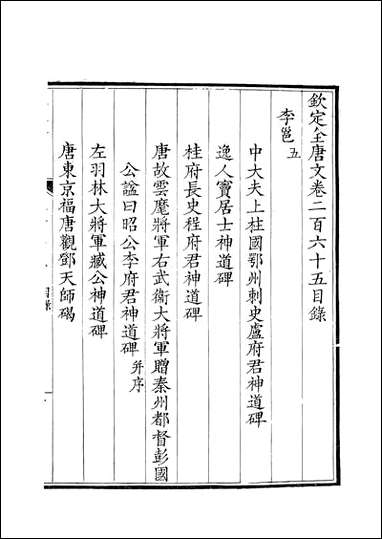 欽定全唐文卷二百六十五目錄
李邕五
中大夫上柱國鄂州刺史盧府君神道碑
逸人竇居士神道碑
桂府長史程府君神道碑
唐故雲麾將軍右武衛大將軍贈秦州都督彭國
公諡曰昭公李府君神道碑并序
左羽林大將軍臧公神道碑
唐東京福唐觀鄧天師碣
目錄
一